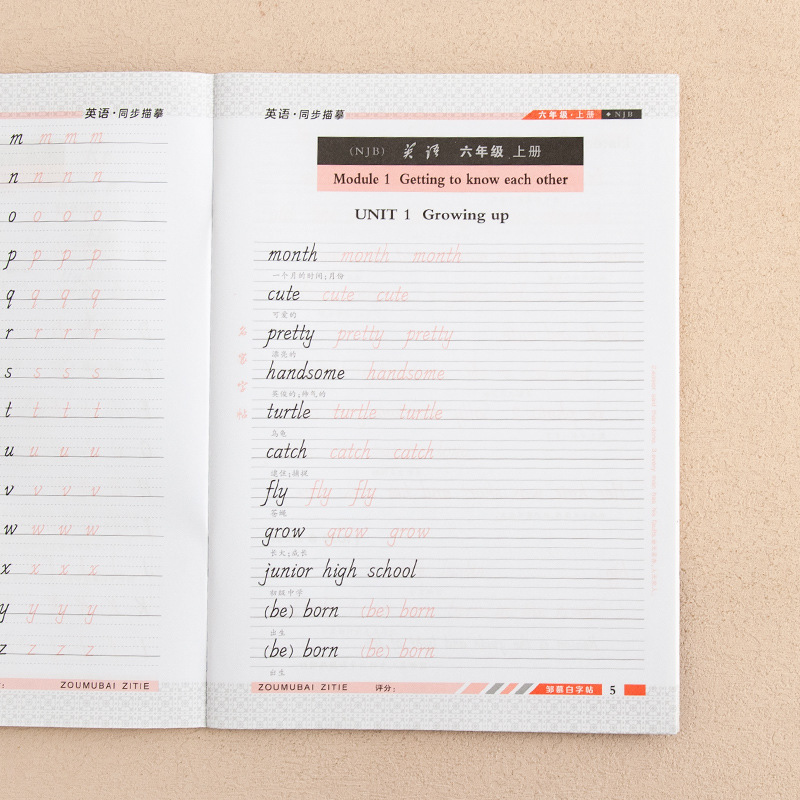 英语·同步描摹
m m m m
n n n n
o o o o
p p p p
q q q q
r r r r
s s s s
t t t t
u u u u
v v v v
w w w w
x x x x
y y y y
z z z z
ZOUMUBAI ZITIE
英语·同步描摹
六年级·上册 NJB
(NJB) 英语 六年级 上册
Module 1 Getting to know each other
UNIT 1 Growing up
month month month
一个月的时间;月份
cute cute cute
可爱的
pretty pretty pretty
漂亮的
handsome handsome
英俊的;帅气的
turtle turtle turtle
乌龟
catch catch catch
逮住;捕捉
fly fly fly
苍蝇
grow grow grow
长大;成长
junior high school
初级中学
(be) born (be) born
出生
(be) born (be) born
出生
ZOUMUBAI ZITIE 评分:
邹慕白字帖 5